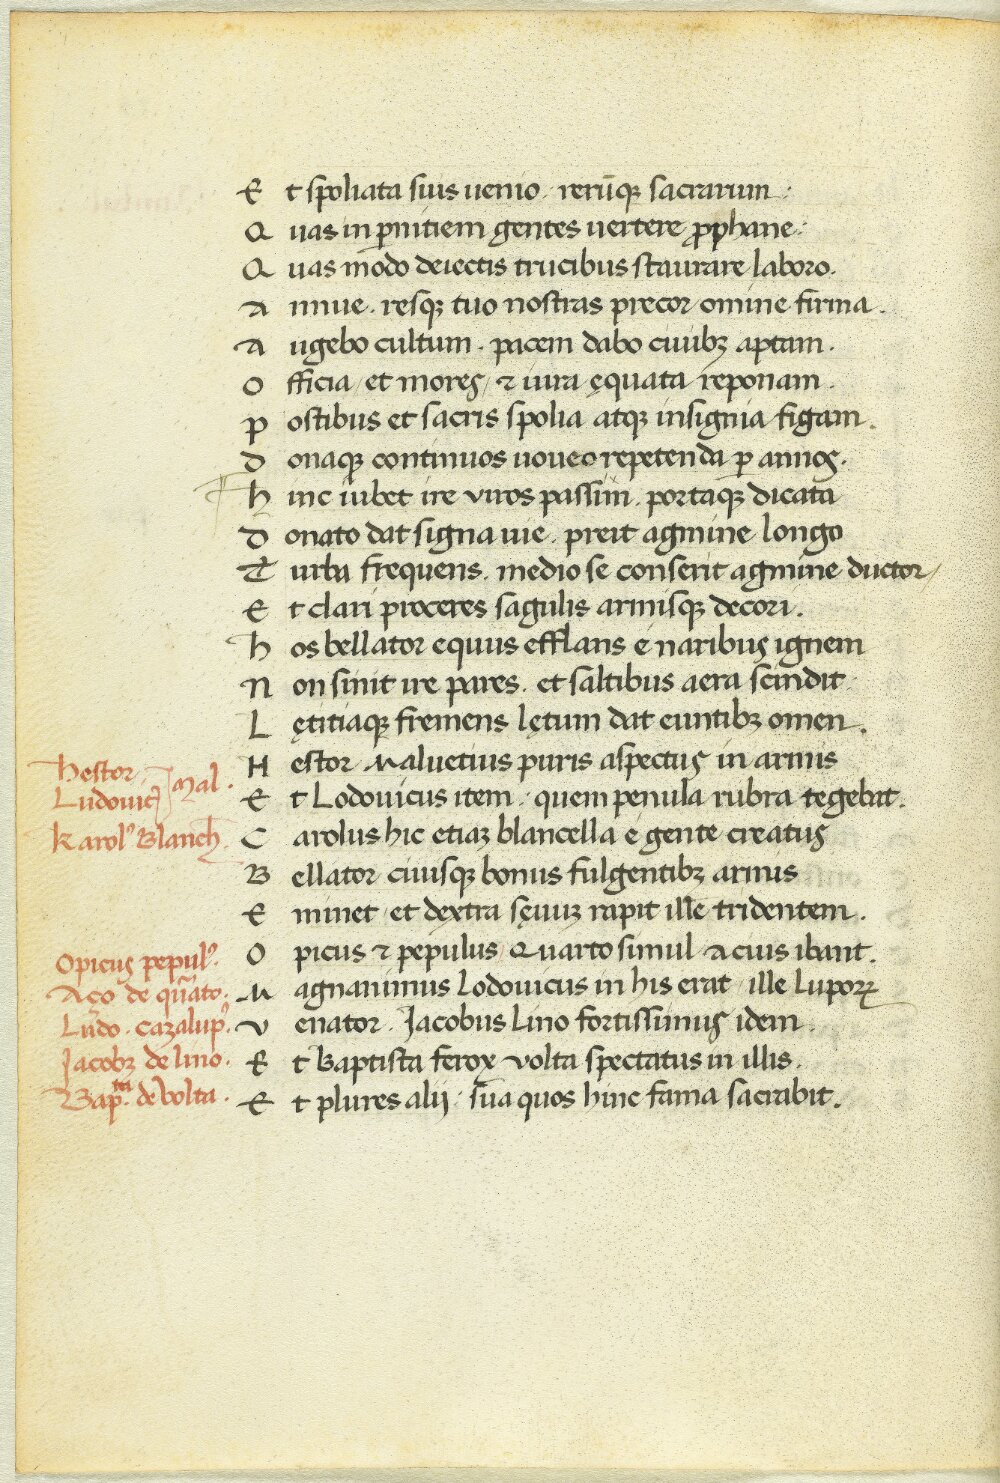 Et spoliata suis uenio. rerūq; sacrarum.
Quas in ꝑnitiem gentes uertere ꝓphane.
Quas modo deiectis trucibus staurare laboro.
Annue. resq; tuo nostras precor omine firma.
Augebo cultum. pacem dabo ciuibꝫ aptam.
Officia, et mores, ⁊ iura ęquata reponam.
Postibus et sacris spolia atq; insignia figam.
Donaq; continuos uoueo repetenda ꝑ annos.
Hinc iubet ire viros passim. portaq; dicata
Donato dat signa uie. preit agmine longo
Turba frequens. medio se conserit agmine ductor,
Et clari proceres sagulis armisq; decori.
Hos bellator equus efflans e naribus ignem
Non sinit ire pares. et saltibus aera scindit
Lętitiaq; fremens lętum dat euntibꝫ omen.
Hestor Maluetius puris aspectus in armis
Et Lodouicus item. quem penula rubra tegebat.
Carolus hic etiaꝫ blancella e gente creatus
Bellator ciuisq; bonus fulgentibꝫ armis
Eminet et dextra sęuuꝫ rapit ille tridentem.
Opicus ⁊ pepulus Quarto simul Acius ibant.
Magnanimus Lodouicus in his erat ille Luporꝝ
Venator. Jacobus Lino fortissimus idem
Et Baptista ferox volta spectatus in illis.
Et plures alij. sua quos hinc fama sacrabit.
Hestor
Ludouic⁹ Mal.
Karol⁹ Blanch.
Opicus pepul⁹.
Aço de q̄rto.
Ludo. cazalup⁹.
Jacobꝫ de lino.
Bap.ta de volta.